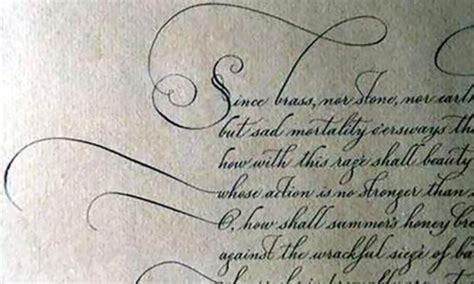 Since brass, nor stone, nor eart
but sad mortality o'ersways th
how with this rage shall beauty
whose action is no stronger than
O, how shall summer's honey bre
against the wrackful siege of ba